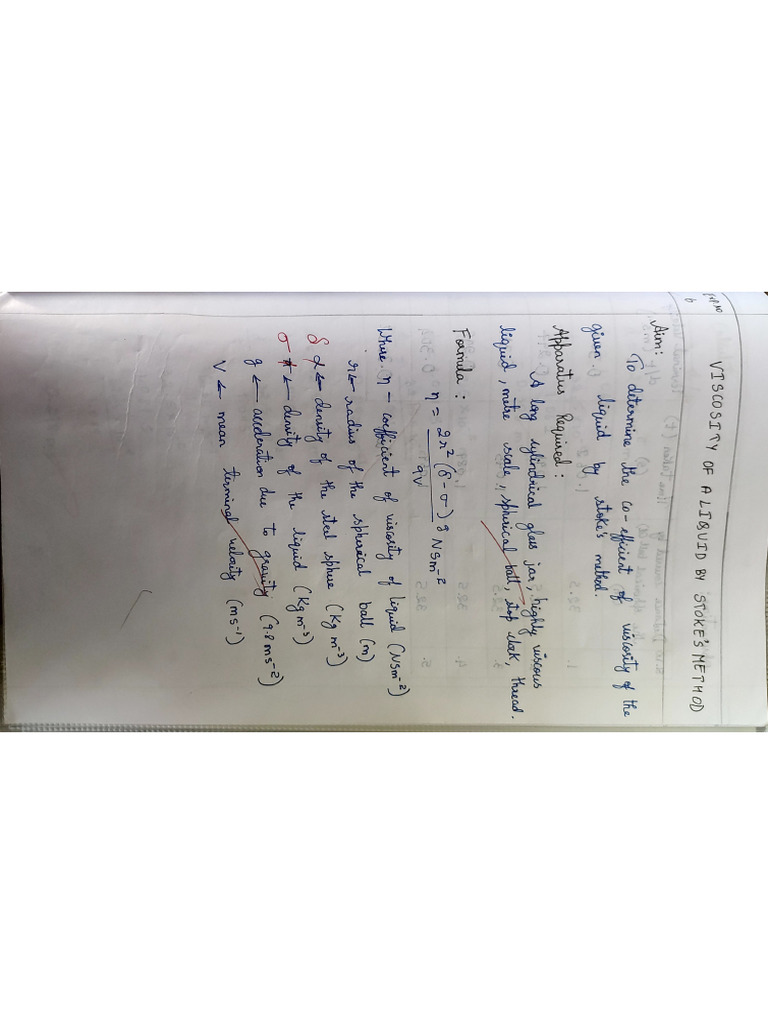 Exp.No
6
VISCOSITY OF A LIQUID BY STOKE'S METHOD
Aim:
To determine the co-efficient of viscosity of the
given liquid by stoke's method.
Apparatus Required:
A long cylindrical glass jar, highly viscous
liquid, metre scale, spherical ball, stop clock, thread.
Formula:
η = 2r²(δ-σ)g Nsm⁻²
9V
Where, η – coefficient of viscosity of liquid (Nsm⁻²)
r ← radius of the spherical ball (m)
δ ← density of the steel sphere (Kg m⁻³)
σ ← density of the liquid (Kg m⁻³)
g ← acceleration due to gravity (9.8 ms⁻²)
V ← mean terminal velocity (ms⁻¹)